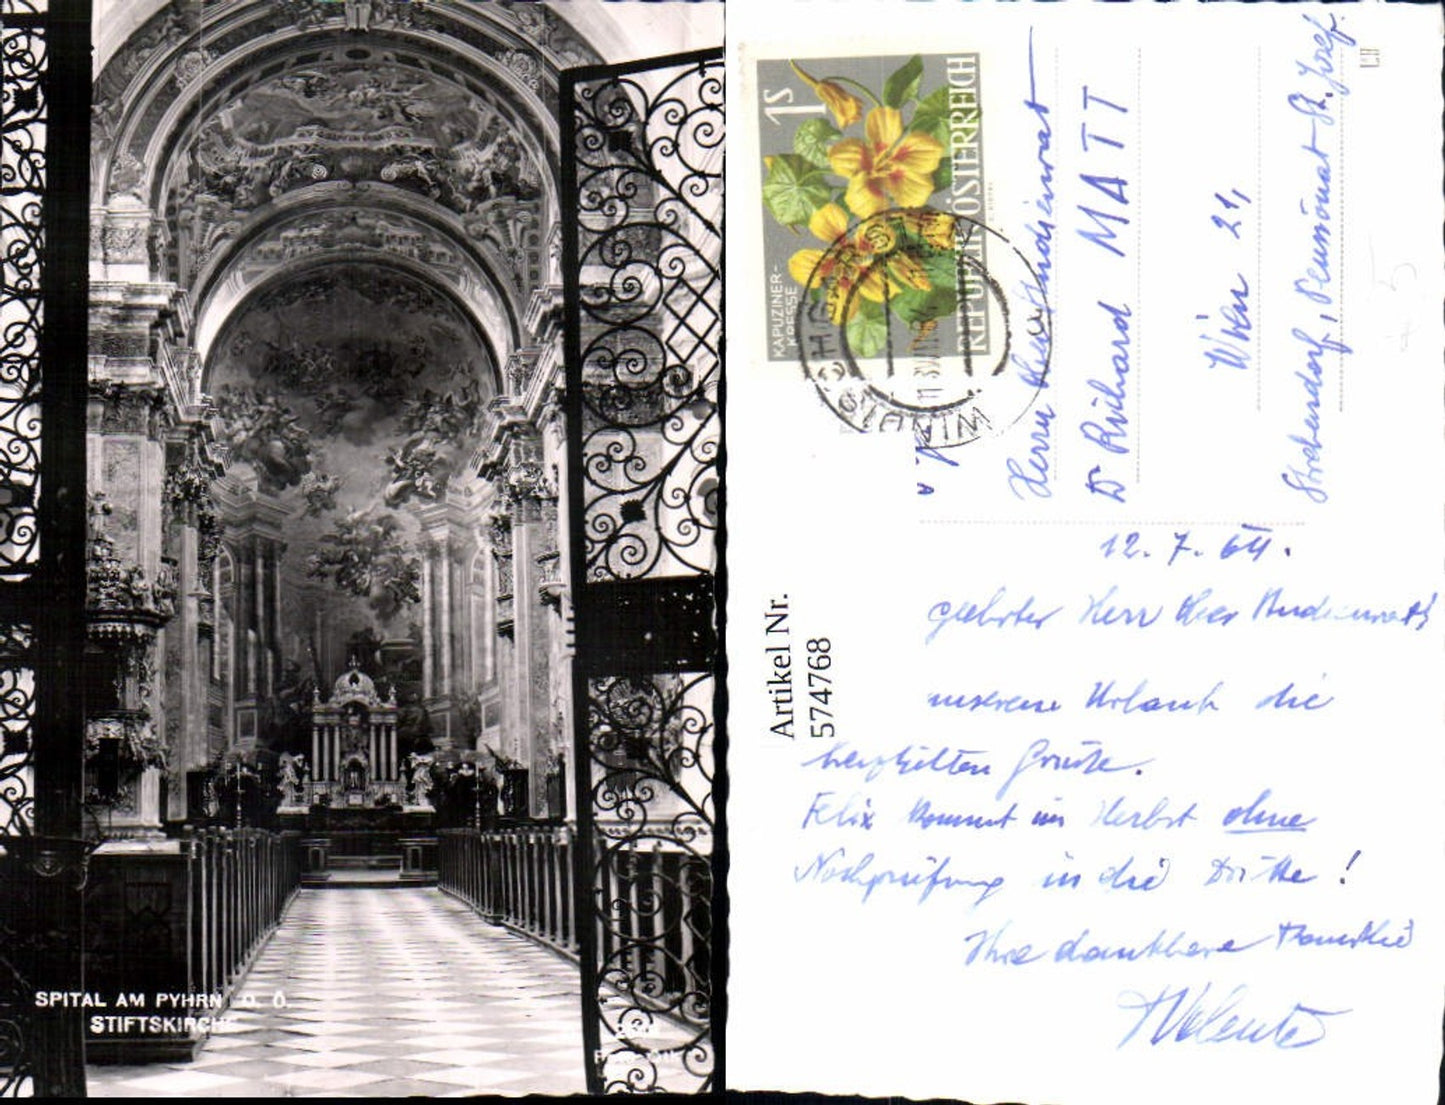 SPITAL AM PYHRN O. Ö.
STIFTSKIRCHE
1S
REPUBLIK ÖSTERREICH
KAPUZINER-
KRESSE
WINDISCHGARSTEN
Artikel Nr.
574768
Herrn
Dr Richard MATT
Wien 21,
Strebersdorf, Pensionat St. Josef.
12.7.64.
geehrter Herr
unserem Urlaub die
herzlichsten Grüße.
Felix kommt im Herbst ohne
Nachprüfung in die Dritte!
Ihre dankbare Familie